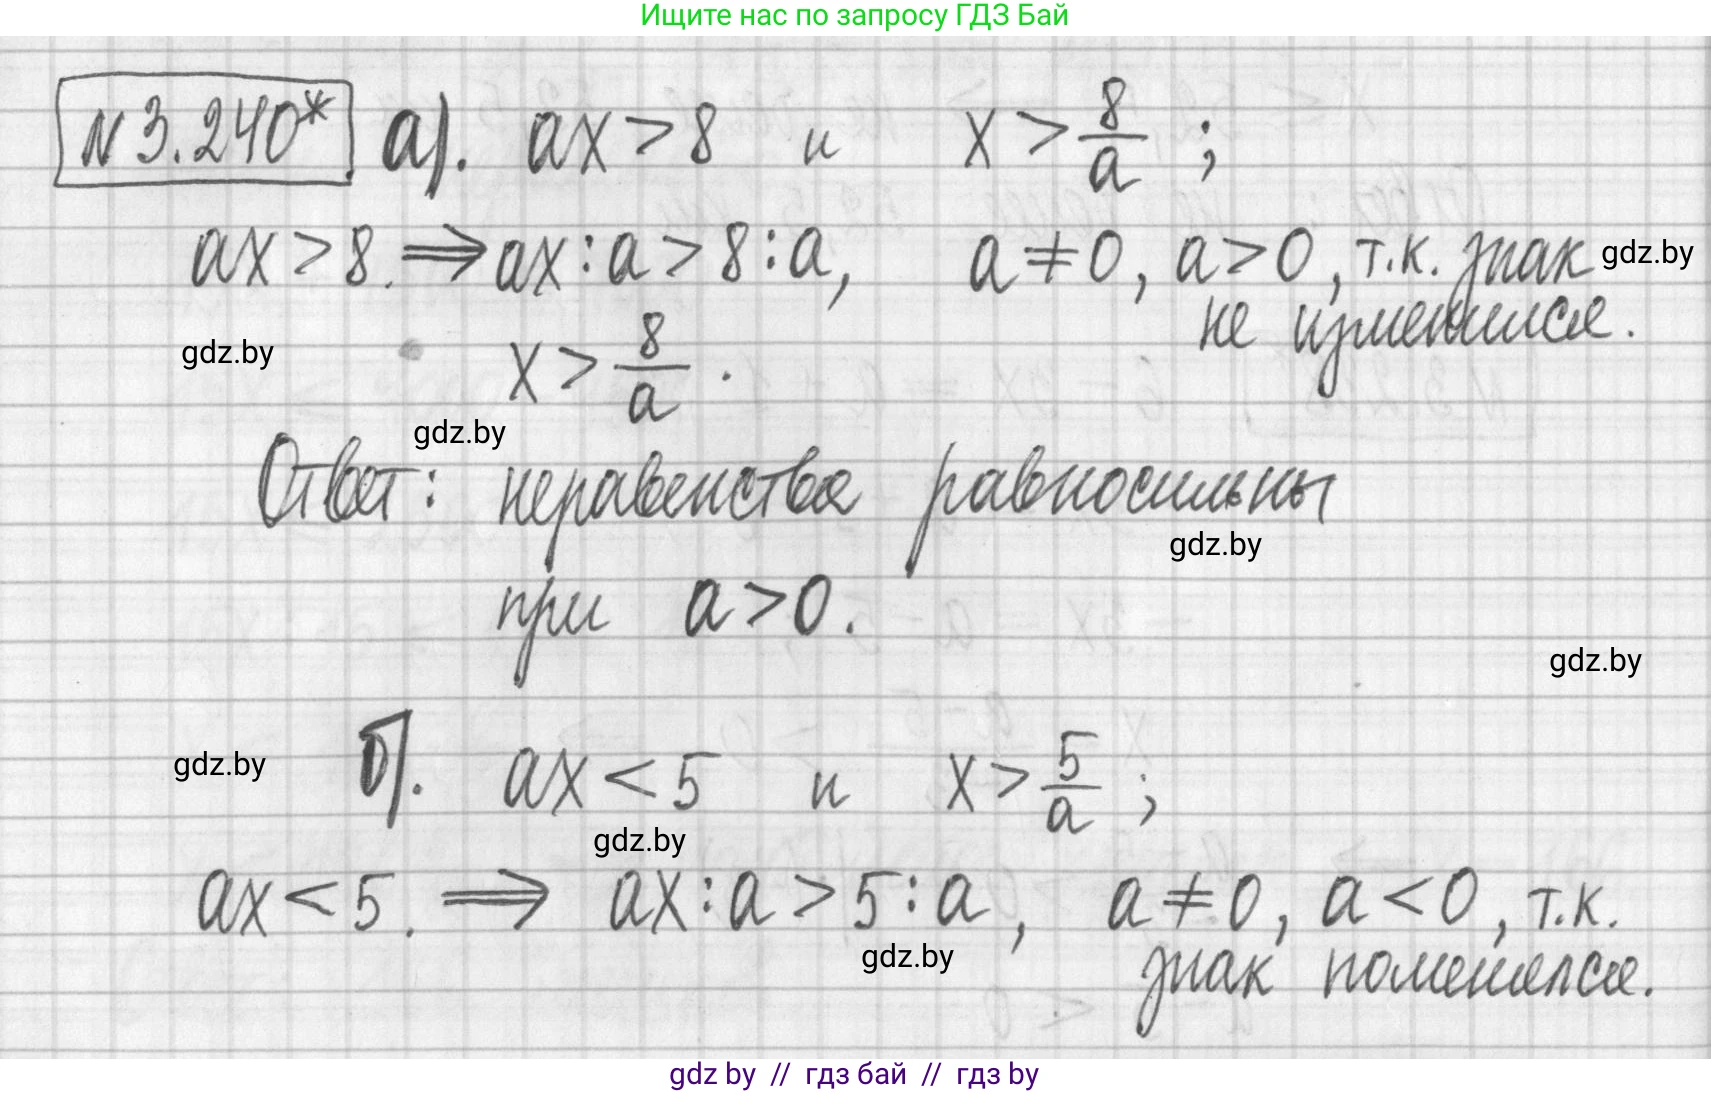 Ищите нас по запросу ГДЗ Бай
N 3.240* а). ax > 8 и x > 8/a ;
ax > 8. ⇒ ax : a > 8 : a, a ≠ 0, a > 0, т.к. знак gdz.by
не изменился.
gdz.by x > 8/a .
gdz.by
Ответ: неравенства равносильны
gdz.by
при a > 0.
gdz.by
gdz.by б). ax < 5 и x > 5/a ;
gdz.by
ax < 5. ⇒ ax : a > 5 : a, a ≠ 0, a < 0, т.к.
gdz.by знак поменялся.
gdz by // гдз бай // гдз by